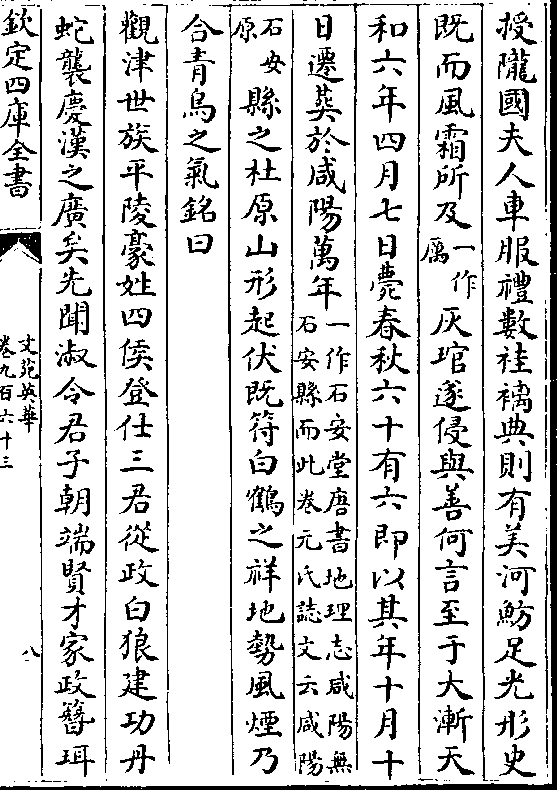 授隴國夫人車服禮數袿襡典則有美河魴足光彤史
既而風霜所及一作厲灰琯遂侵與善何言至于大漸天
和六年四月七日薨春秋六十有六即以其年十月十
日遷葬於咸陽萬年一作石安堂唐書地理志咸陽無石安縣而此卷元氏誌文云咸陽
石安原縣之杜原山形起伏既符白鶴之祥地勢風煙乃
合青烏之氣銘曰
觀津世族平陵豪姓四侯登仕三君從政白狼建功丹
蛇襲慶漢之廣矣先聞淑令君子朝端賢才家政簪珥
欽定四庫全書
文苑英華
卷九百六十三
八